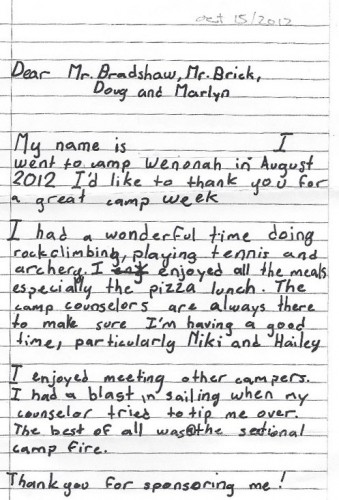 oct 15/2012
Dear Mr. Bradshaw, Mr. Brick,
Doug and Marlyn
My name is I
went to camp Wenonah in August
2012 I'd like to thank you for
a great camp week
I had a wonderful time doing
rockclimbing, playing tennis and
archery. I enjoyed all the meals
especially the pizza lunch. The
camp counselors are always there
to make sure I'm having a good
time, particularly Niki and Hailey
I enjoyed meeting other campers.
I had a blast in sailing when my
counselor tried to tip me over.
The best of all was the sectional
camp fire.
Thank you for sponsoring me!